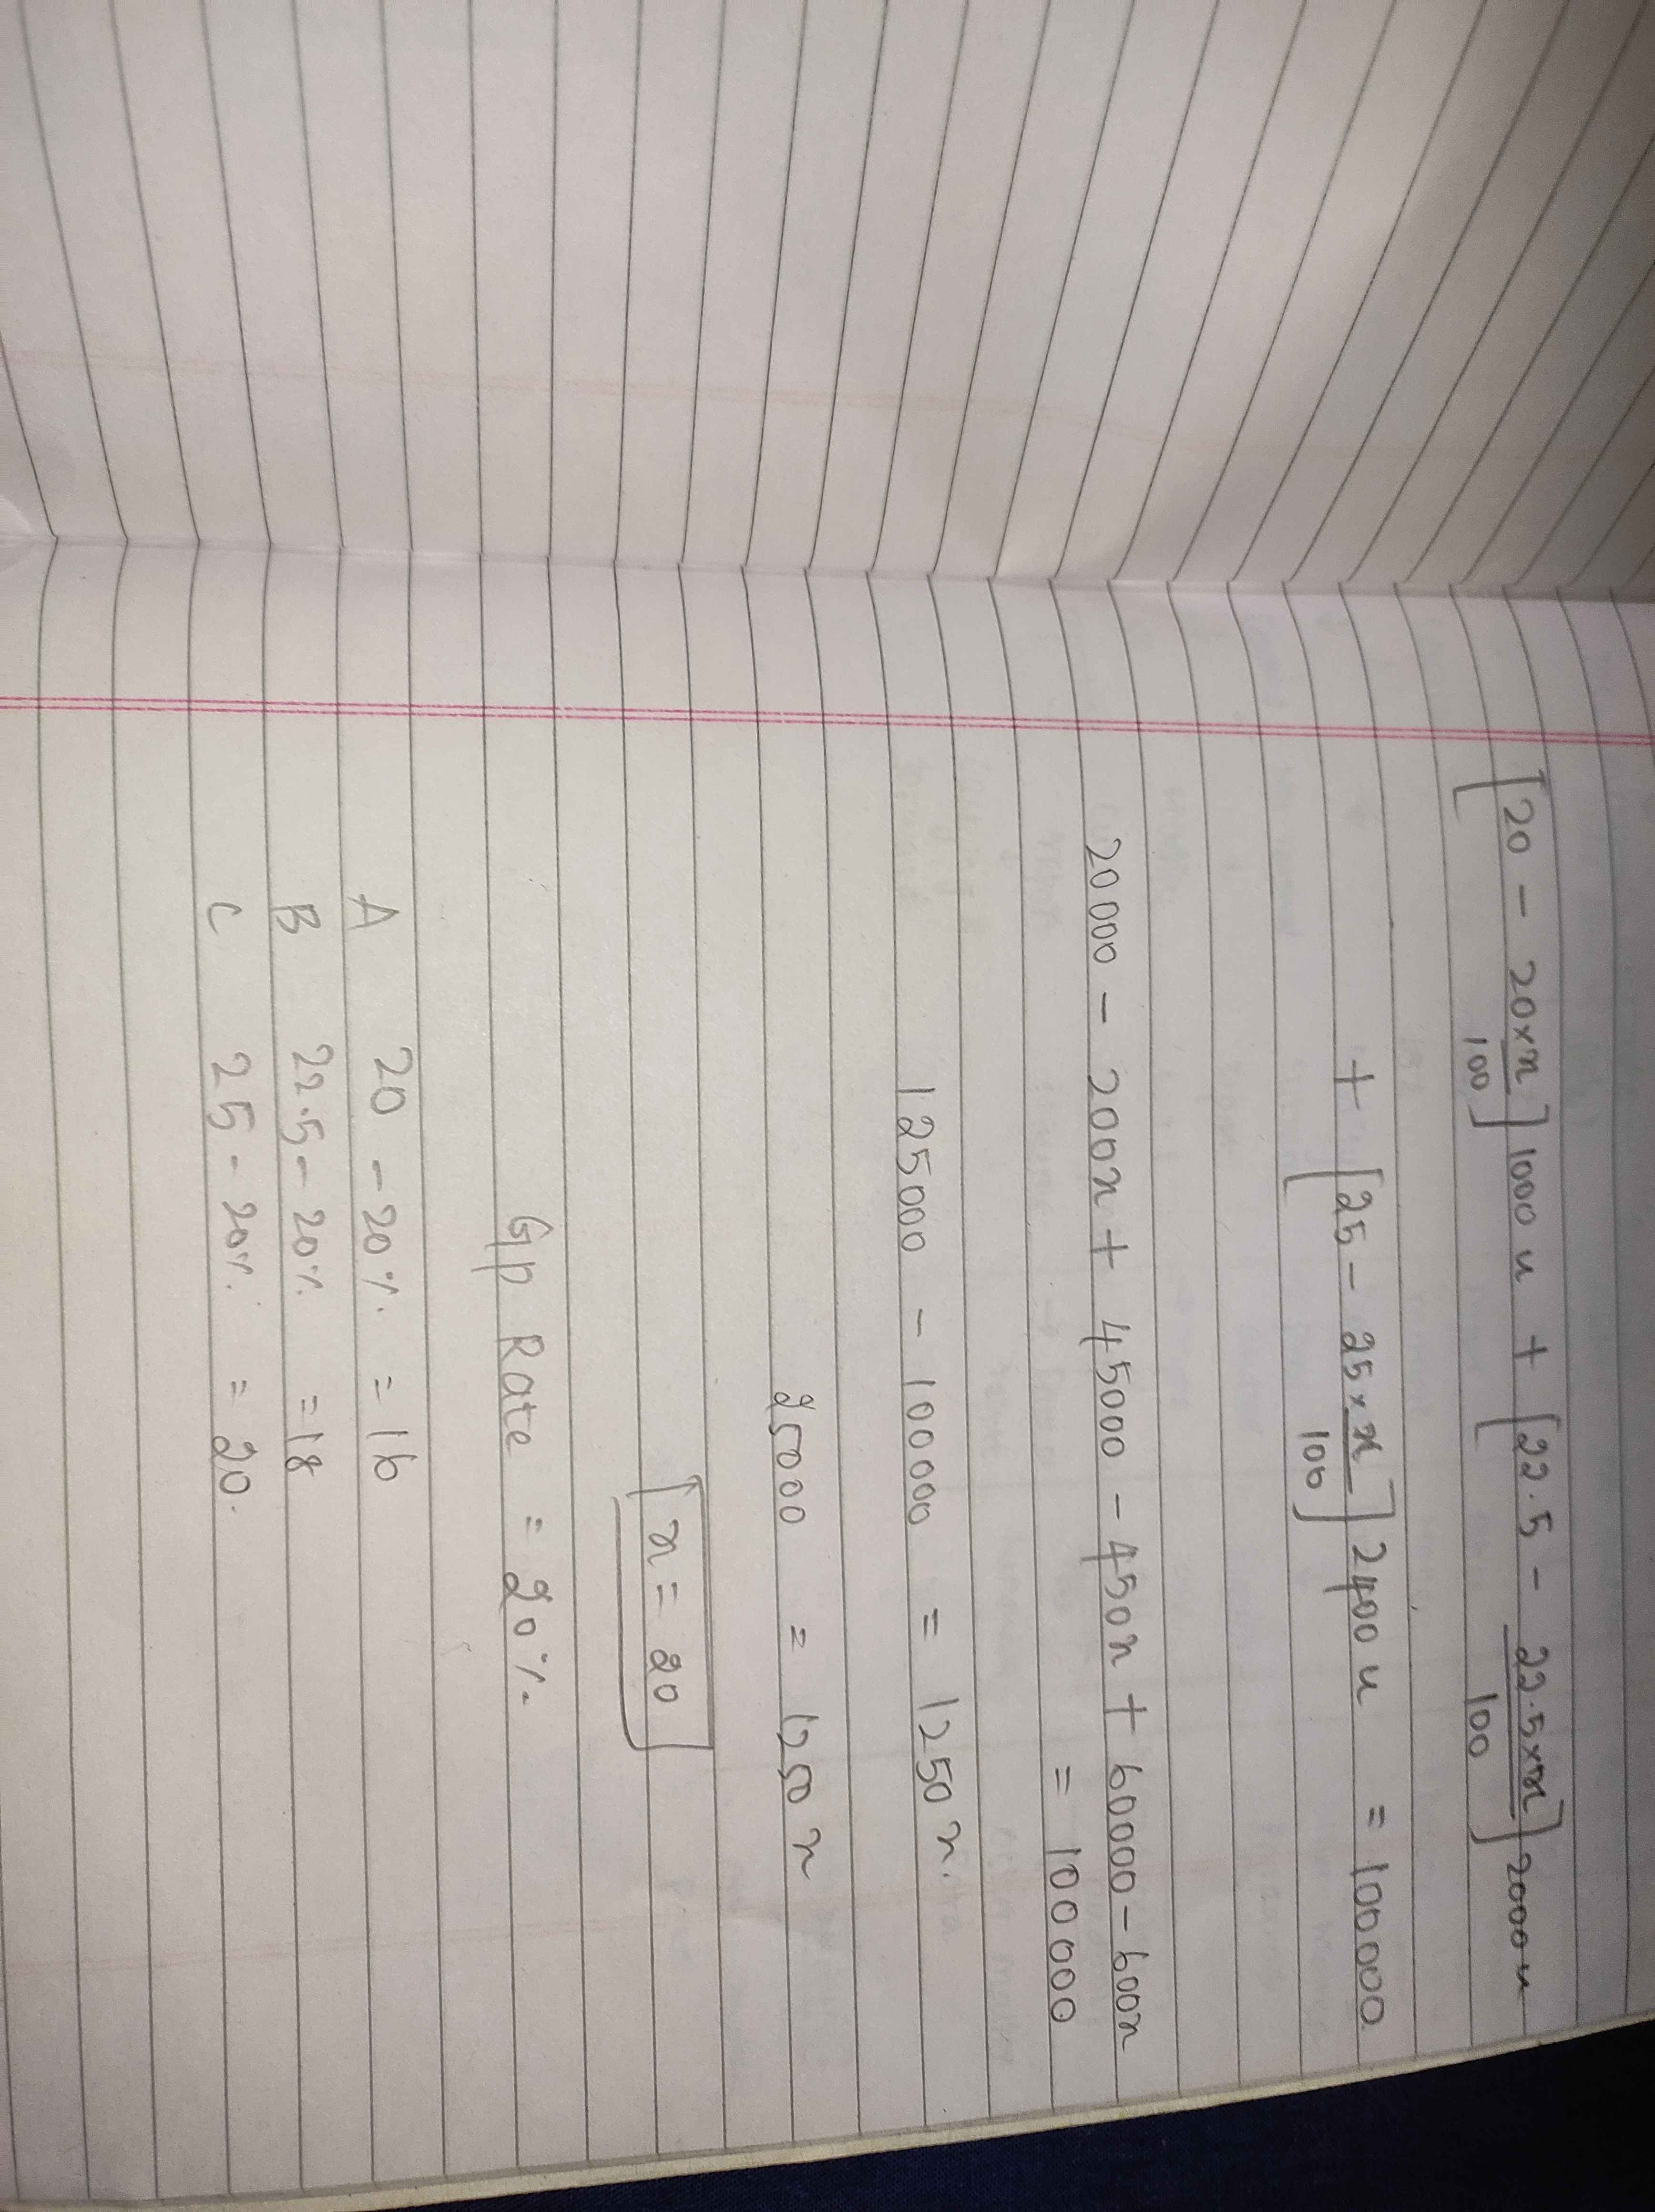 [20 - 20×x/100] 1000 u + [22.5 - 22.5×x/100] 2000 u
+ [25 - 25×x/100] 2400 u = 100000
20000 - 200x + 45000 - 450x + 60000 - 600x
= 100000
125000 - 100000 = 1250x.
25000 = 1250x
x = 20
Gp Rate = 20%.
A 20 - 20%. = 16
B 22.5 - 20%. = 18
C 25 - 20%. = 20.